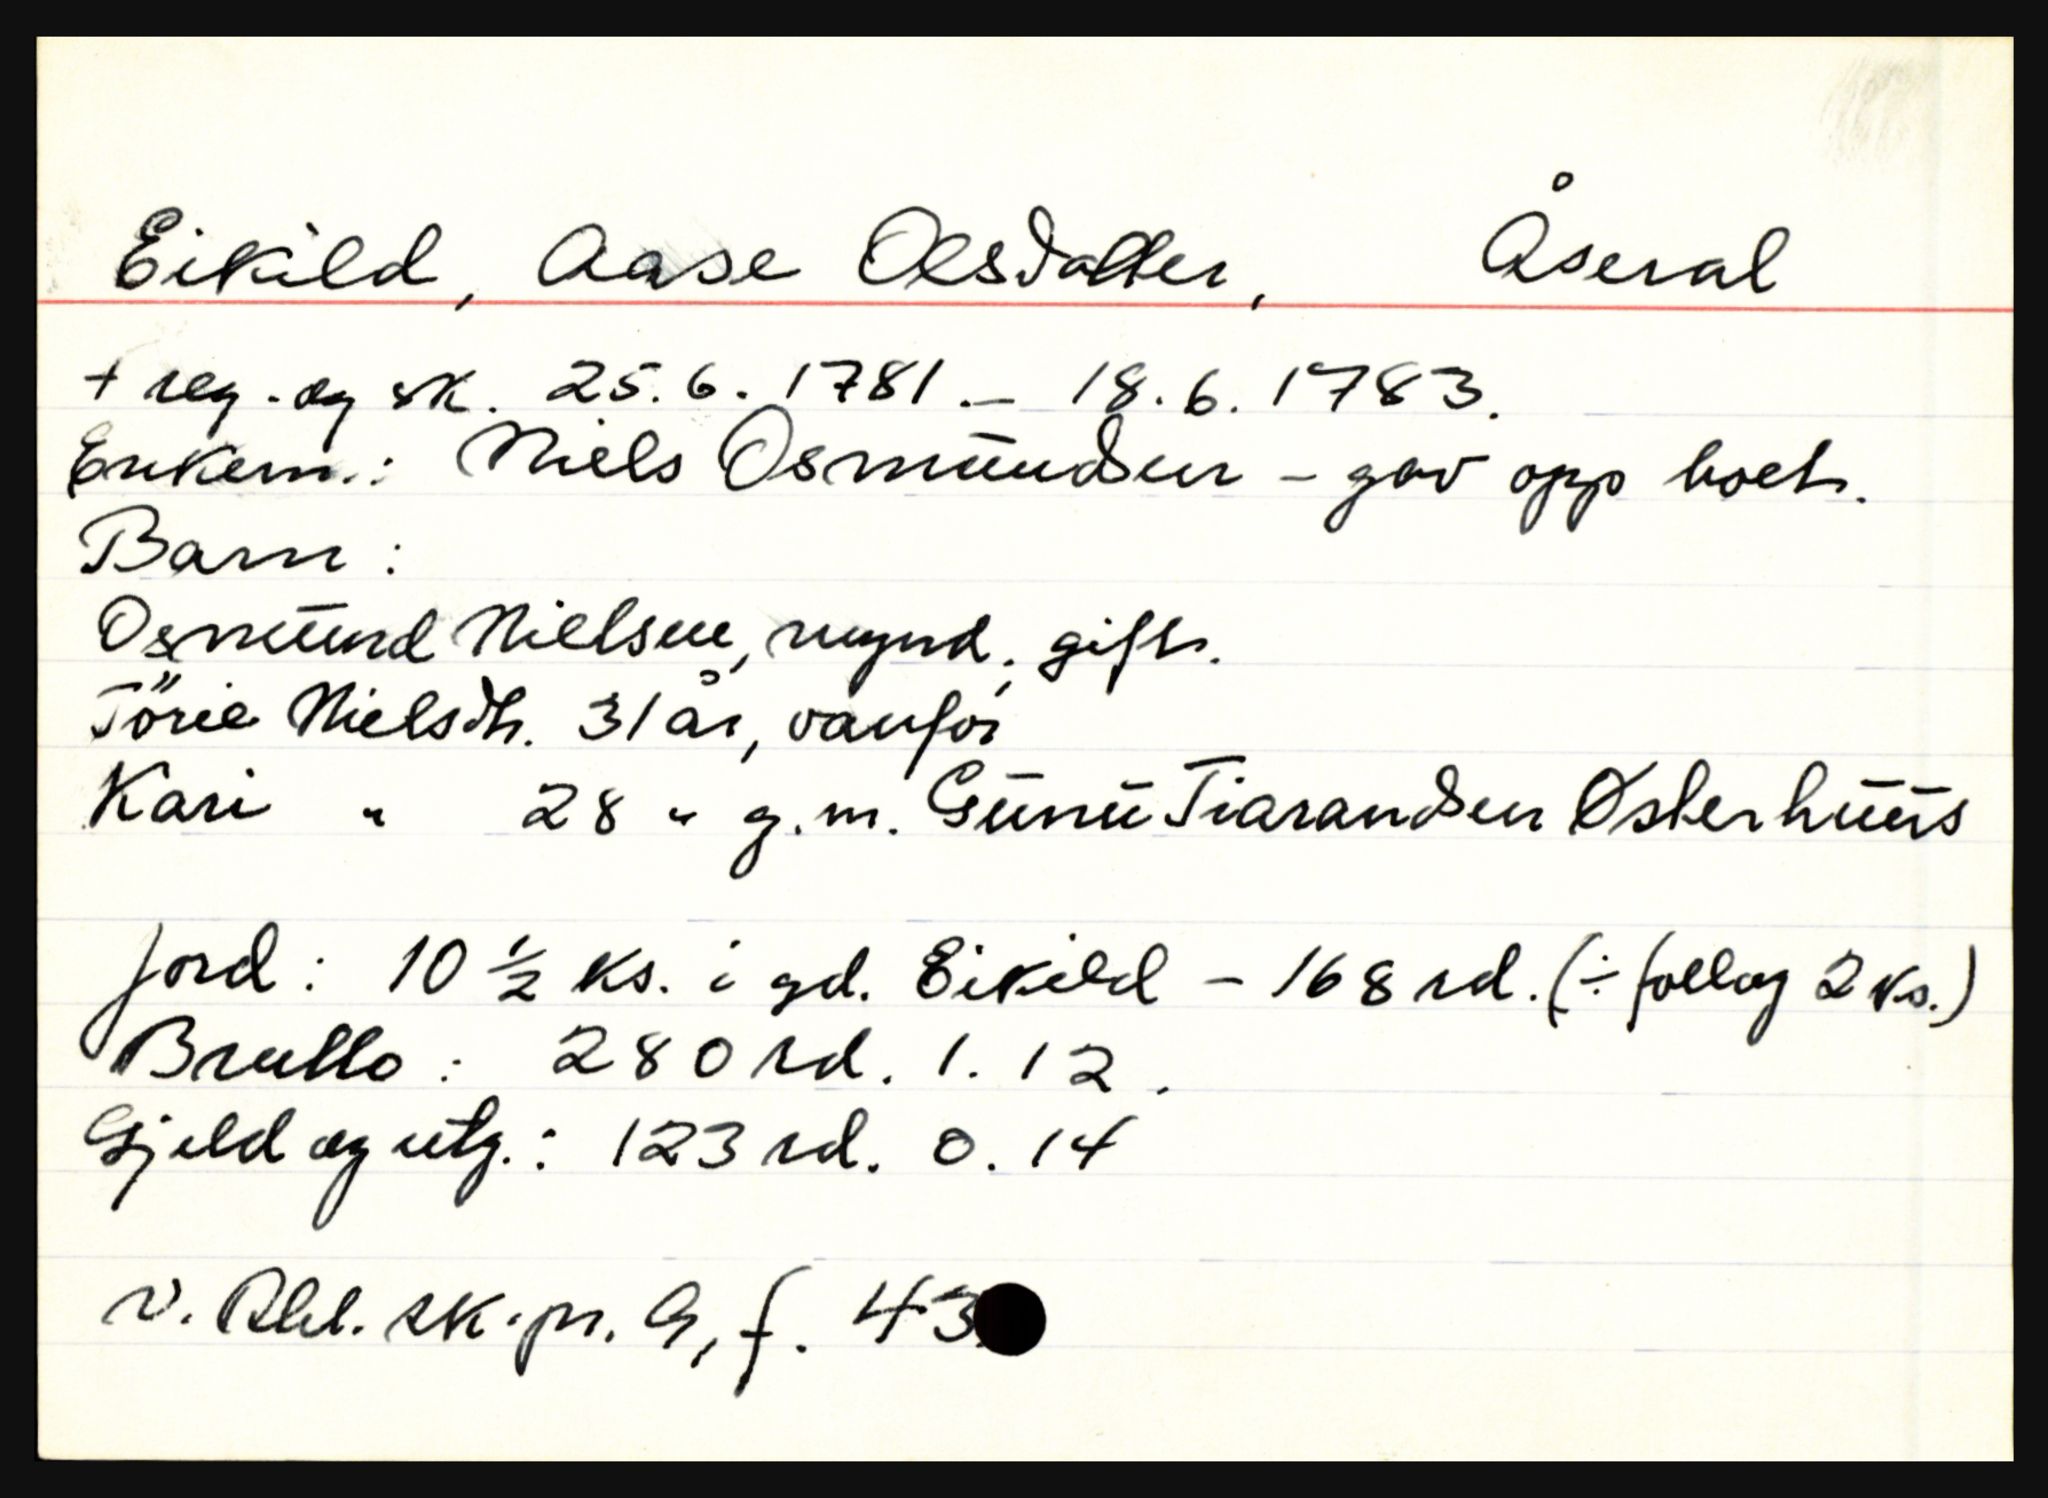 Eikild, Aase Olsdatter, Åseral
+ reg. og sk. 25.6.1781. – 18.6.1783.
Enkem.: Niels Osmundsen – gav opp boet.
Barn:
Osmund Nielsen, mynd., gift.
Törie Nielsdt. 31 år, vanfør
Kari " 28 " g.m. Gunu Tiarandsen Østerhuus
Jord: 10 ½ ks. i gd. Eikild – 168 rd. (÷ follog 2 ks.)
Brutto: 280 rd. 1. 12.
Gjeld og utg.: 123 rd. 0. 14
V. Rbl. sk.pr. 9, f. 43